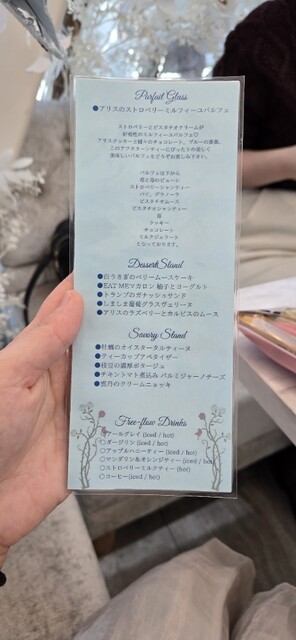 Parfait Glass
●アリスのストロベリーミルフィーユパルフェ
ストロベリーとピスタチオクリームが
好相性のミルフィーユパルフェ♡
アリスクッキーと蝶々のチョコレート、ブルーの薔薇、
このアフタヌーンティーにぴったりの美しく
美味しいパルフェをどうぞお楽しみ下さい。
パルフェは下から
苺と苺のピューレ
ストロベリーシャンティー
パイ、グラノーラ
ピスタチオムース
ピスタチオシャンティー
苺
クッキー
チョコレート
ミルクジェラート
となっております。
Dessert Stand
●白うさぎのベリームースケーキ
●EAT MEマカロン 柚子とヨーグルト
●トランプのガナッシュサンド
●しましま靴下グラスヴェリーヌ
●アリスのラズベリーとカルピスのムース
Savory Stand
●牡蠣のオイスタータルティーヌ
●ティーカップアペタイザー
●枝豆の濃厚ポタージュ
●チキントマト煮込み パルミジャーノチーズ
●雲丹のクリームニョッキ
Free-flow Drinks
○アールグレイ (iced / hot)
○ダージリン (iced / hot)
○アップルハニーティー (iced / hot)
○マンダリン&オレンジティー (iced / hot)
○ストロベリーミルクティー (hot)
○コーヒー(iced / hot)